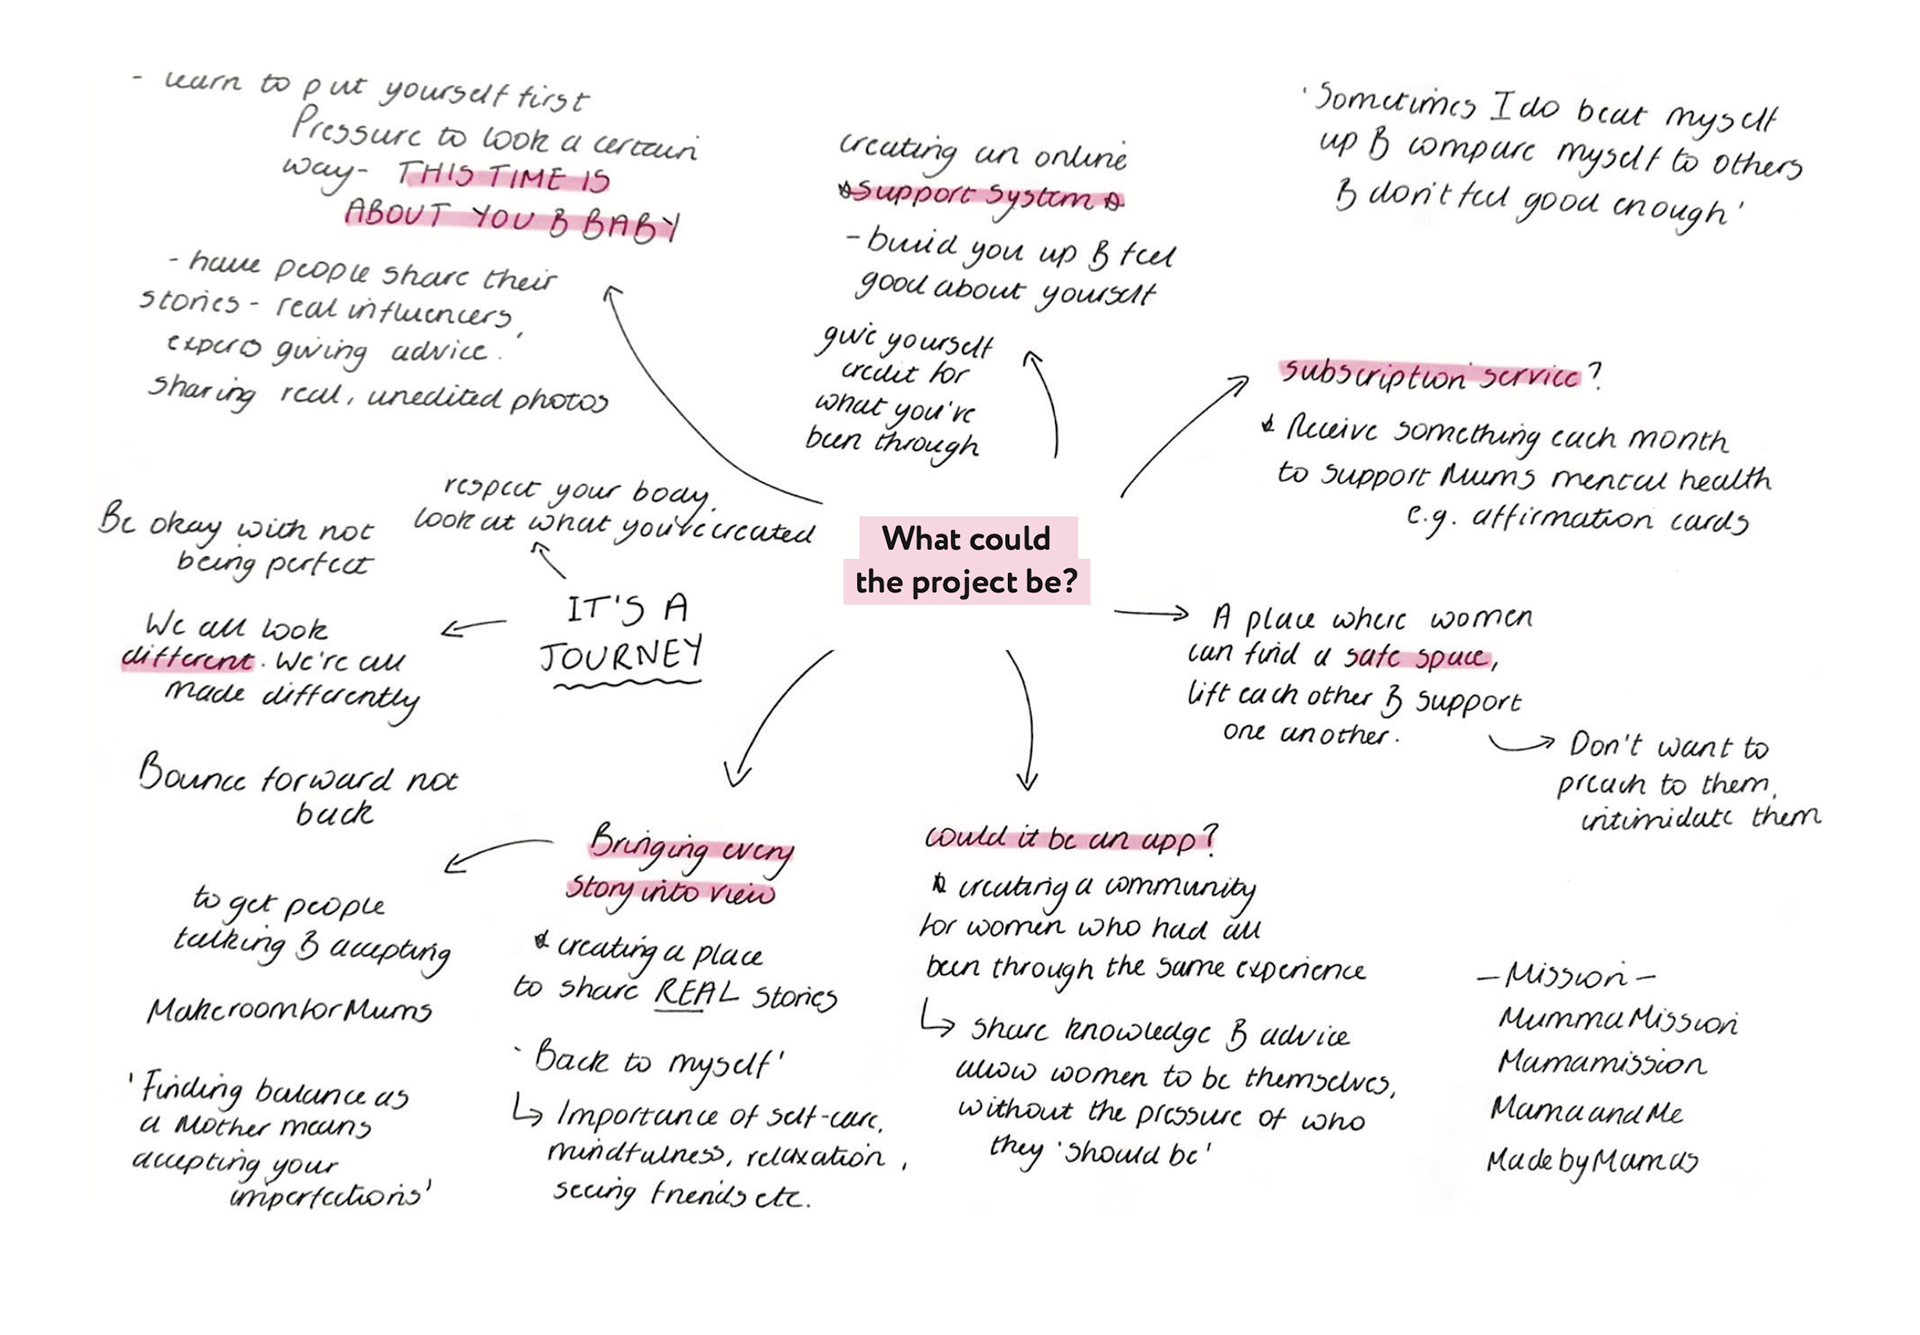 - learn to put yourself first
Pressure to look a certain
way- THIS TIME IS
ABOUT YOU & BABY
- have people share their
stories - real influencers,
experts giving advice.'
sharing real, unedited photos
creating an online
☆support system☆
- build you up & feel
good about yourself
give yourself
credit for
what you've
been through
'Sometimes I do beat myself
up & compare myself to others
& don't feel good enough'
subscription service?
☆ Receive something each month
to support Mums mental health
e.g. affirmation cards
respect your body,
look at what you've created
Be okay with not
being perfect
IT'S A
JOURNEY
We all look
different. We're all
made differently
What could
the project be?
A place where women
can find a safe space,
lift each other & support
one another.
Don't want to
preach to them,
intimidate them
Bounce forward not
back
Bringing every
story into view
☆ creating a place
to share REAL stories
to get people
talking & accepting
MakeroomforMums
'Finding balance as
a Mother means
accepting your
imperfections'
'Back to myself'
↳ Importance of self-care,
mindfulness, relaxation,
seeing friends etc.
could it be an app?
☆ creating a community
for women who had all
been through the same experience
↳ share knowledge & advice
allow women to be themselves,
without the pressure of who
they 'should be'
- Mission -
MummaMission
Mamamission
MamaandMe
MadebyMamas